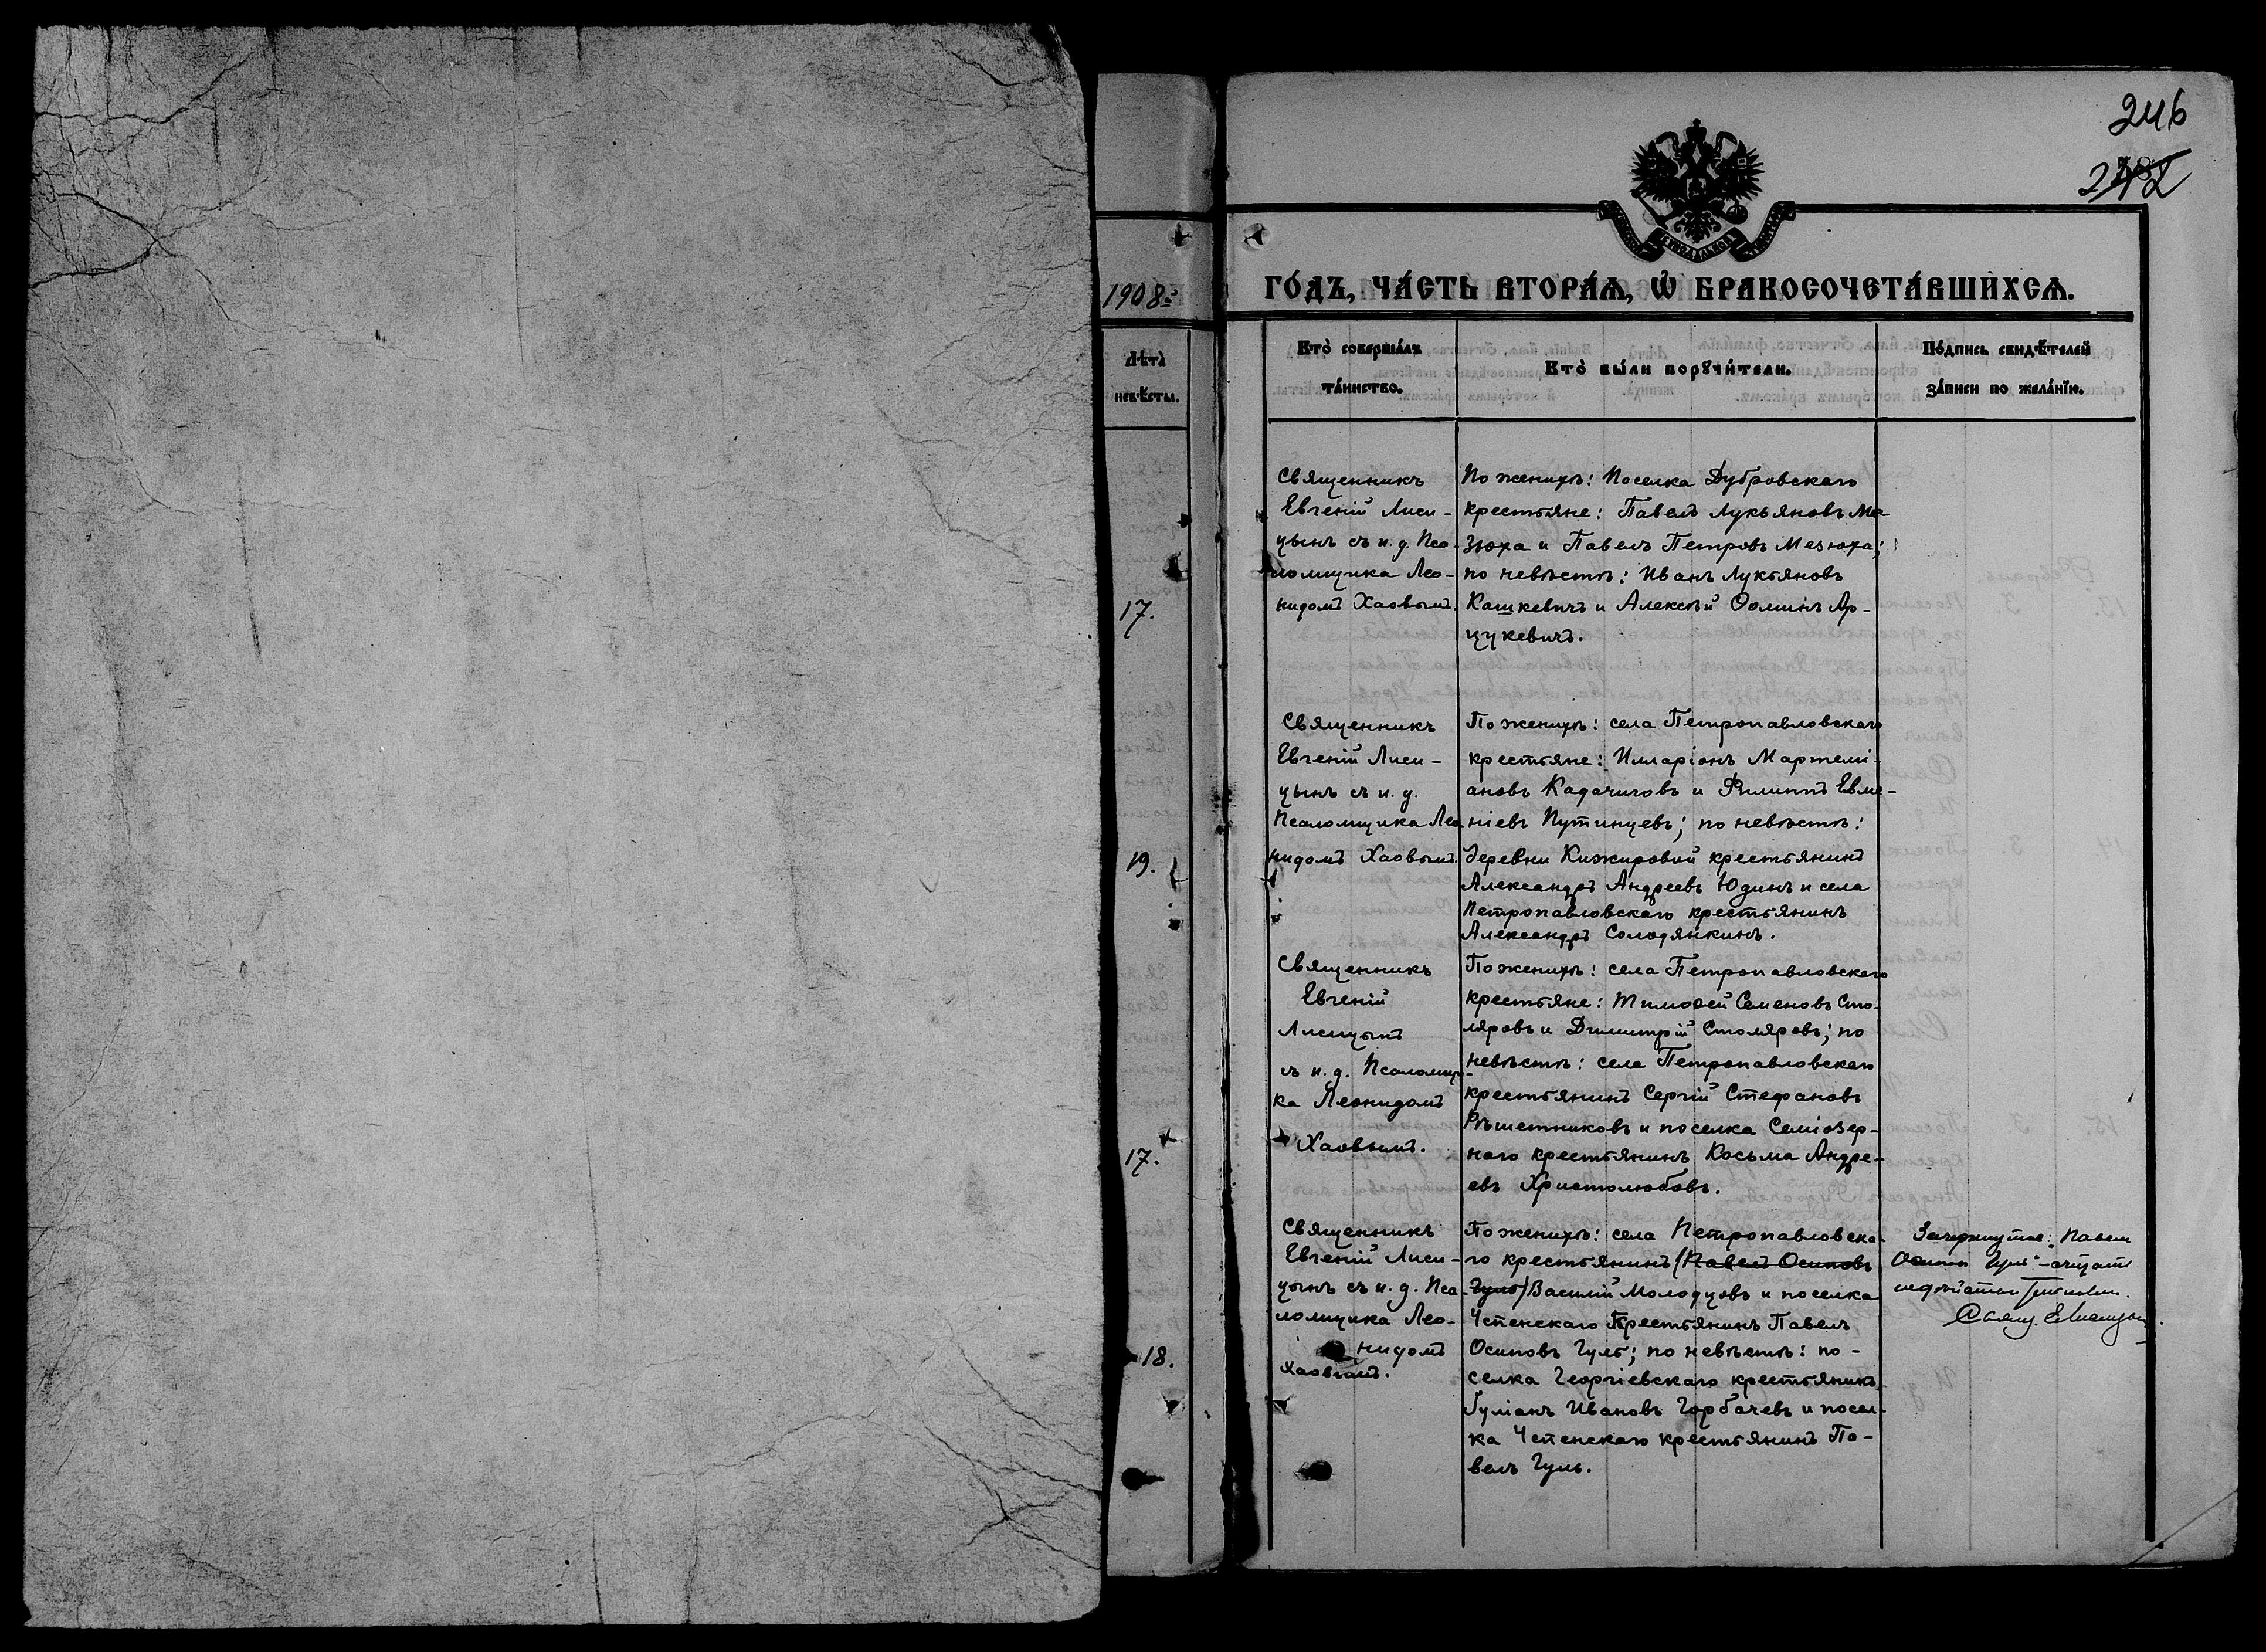 246
242
1908 г.
ГО́ДЪ, ЧА́СТЬ ВТОРА́Ѧ, Ѽ БРАКОСОЧЕТА́ВШИХСѦ.
Лѣта̀
невѣ́сты.
Кто̀ соверша́лъ
та́инство.
Кто̀ бы́ли порꙋчи́тели.
По́дпись свидѣ́телей
за́писи по жела́нїю.
17.
Священникъ
Евгеній Лиси-
цынъ съ и. д. Пса-
ломщика Лео-
нидомъ Хаовымъ.
По женихѣ: Поселка Дубровскаго
крестьяне: Павелъ Лукьяновъ Ме-
зюха и Павелъ Петровъ Мезюха;
по невѣстѣ: Иванъ Лукьяновъ
Кашкевичъ и Алексѣй Ѳоминъ Ар-
цукевичъ.
19.
Священникъ
Евгеній Лиси-
цынъ съ и. д.
Псаломщика Лео-
нидомъ Хаовымъ.
По женихѣ: села Петропавловскаго
крестьяне: Илларіонъ Мартемі-
ановъ Кадачиговъ и Филиппъ Евме-
ніевъ Путинцевъ; по невѣстѣ:
деревни Кижировой крестьянинъ
Александръ Андреевъ Юдинъ и села
Петропавловскаго крестьянинъ
Александръ Солодянкинъ.
17.
Священникъ
Евгеній
Лисицынъ
съ и. д. Псаломщи-
ка Леонидомъ
Хаовымъ.
По женихѣ: села Петропавловскаго
крестьяне: Тимоѳей Семеновъ Сто-
ляровъ и Димитрій Столяровъ; по
невѣстѣ: села Петропавловскаго
крестьянинъ Сергій Стефановъ
Рѣшетниковъ и поселка Семіозер-
наго крестьянинъ Косьма Андре-
евъ Христолюбовъ.
18.
Священникъ
Евгеній Лиси-
цынъ съ и. д. Пса-
ломщика Лео-
нидомъ
Хаовымъ.
По женихѣ: села Петропавловска-
го крестьянинъ (Павелъ Осиповъ
Гуль) Василій Молодцовъ и поселка
Успенскаго крестьянинъ Павелъ
Осиповъ Гуль; по невѣстѣ: по-
селка Георгіевскаго крестьянинъ
Іуліанъ Ивановъ Горбачевъ и посел-
ка Успенскаго крестьянинъ Па-
велъ Гуль.
Зачеркнутое: „Павелъ
Осиповъ Гуль"
Свящ. Е. Лисицын